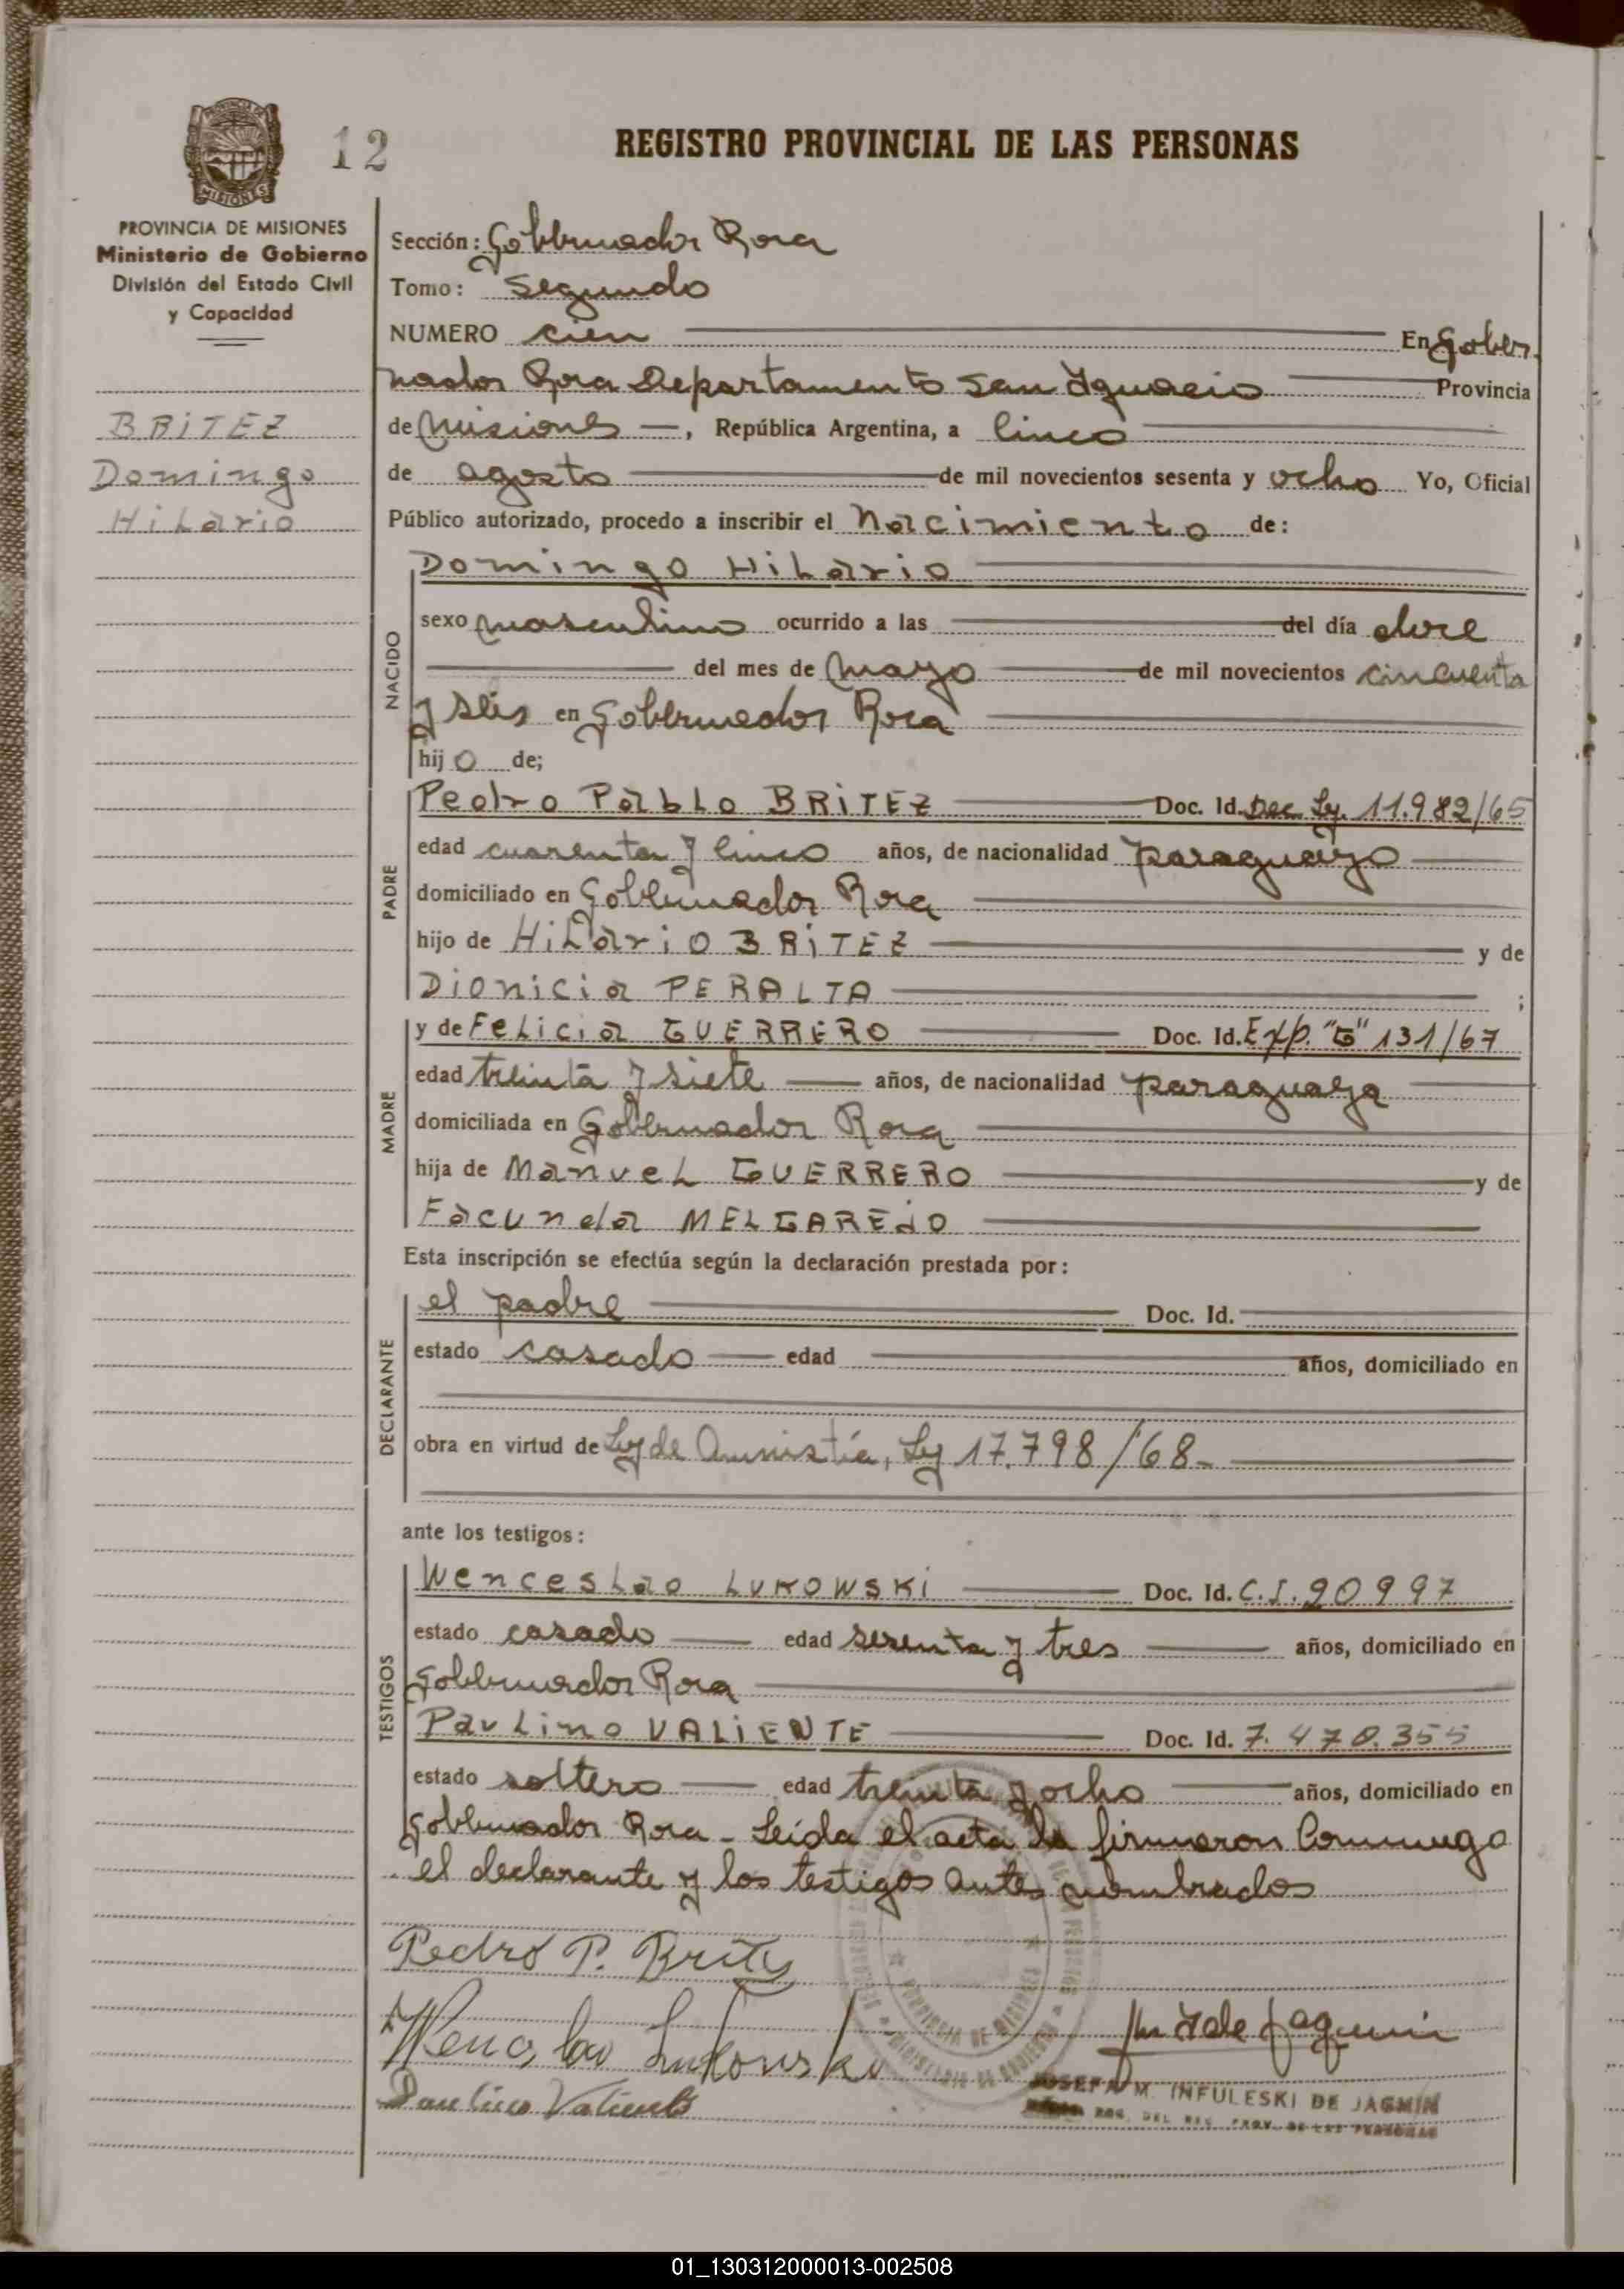 12
REGISTRO PROVINCIAL DE LAS PERSONAS
PROVINCIA DE MISIONES
Ministerio de Gobierno
División del Estado Civil
y Capacidad
BRITEZ
Domingo
Hilario
Sección: Gobernador Roca
Tomo: Segundo
NUMERO cien En Gober-
nador Roca Departamento San Ignacio Provincia
de Misiones, República Argentina, a Cinco
de agosto de mil novecientos sesenta y ocho Yo, Oficial
Público autorizado, procedo a inscribir el Nacimiento de:
Domingo Hilario
NACIDO
sexo masculino ocurrido a las del día doce
del mes de Mayo de mil novecientos cincuenta
y seis en Gobernador Roca
hijo de;
PADRE
Pedro Pablo BRITEZ Doc. Id. Dec. Ley. 11.982/65
edad cuarenta y cinco años, de nacionalidad paraguayo
domiciliado en Gobernador Roca
hijo de Hilario BRITEZ y de
Dionicia PERALTA ;
MADRE
y de Felicia GUERRERO Doc. Id. Exp. "G" 131/67
edad treinta y siete años, de nacionalidad paraguaya
domiciliada en Gobernador Roca
hija de Manuel GUERRERO y de
Facunda MELGAREJO
Esta inscripción se efectúa según la declaración prestada por:
DECLARANTE
el padre Doc. Id.
estado casado edad años, domiciliado en
obra en virtud de Ley de Amnistía, Ley 17.798/68-
ante los testigos:
TESTIGOS
Wenceslao LUKOWSKI Doc. Id. C.I. 90997
estado casado edad sesenta y tres años, domiciliado en
Gobernador Roca
Paulino VALIENTE Doc. Id. 7.470.355
estado soltero edad treinta y ocho años, domiciliado en
Gobernador Roca - Leída el acta la firmaron Conmigo
el declarante y los testigos antes nombrados
Pedro P. Britez
Wenceslao Lukowski
Paulino Valiente
JOSEFA M. INFULESKI DE JAGMIN
REG. DEL REG. PROV. DE LAS PERSONAS
01_130312000013-002508